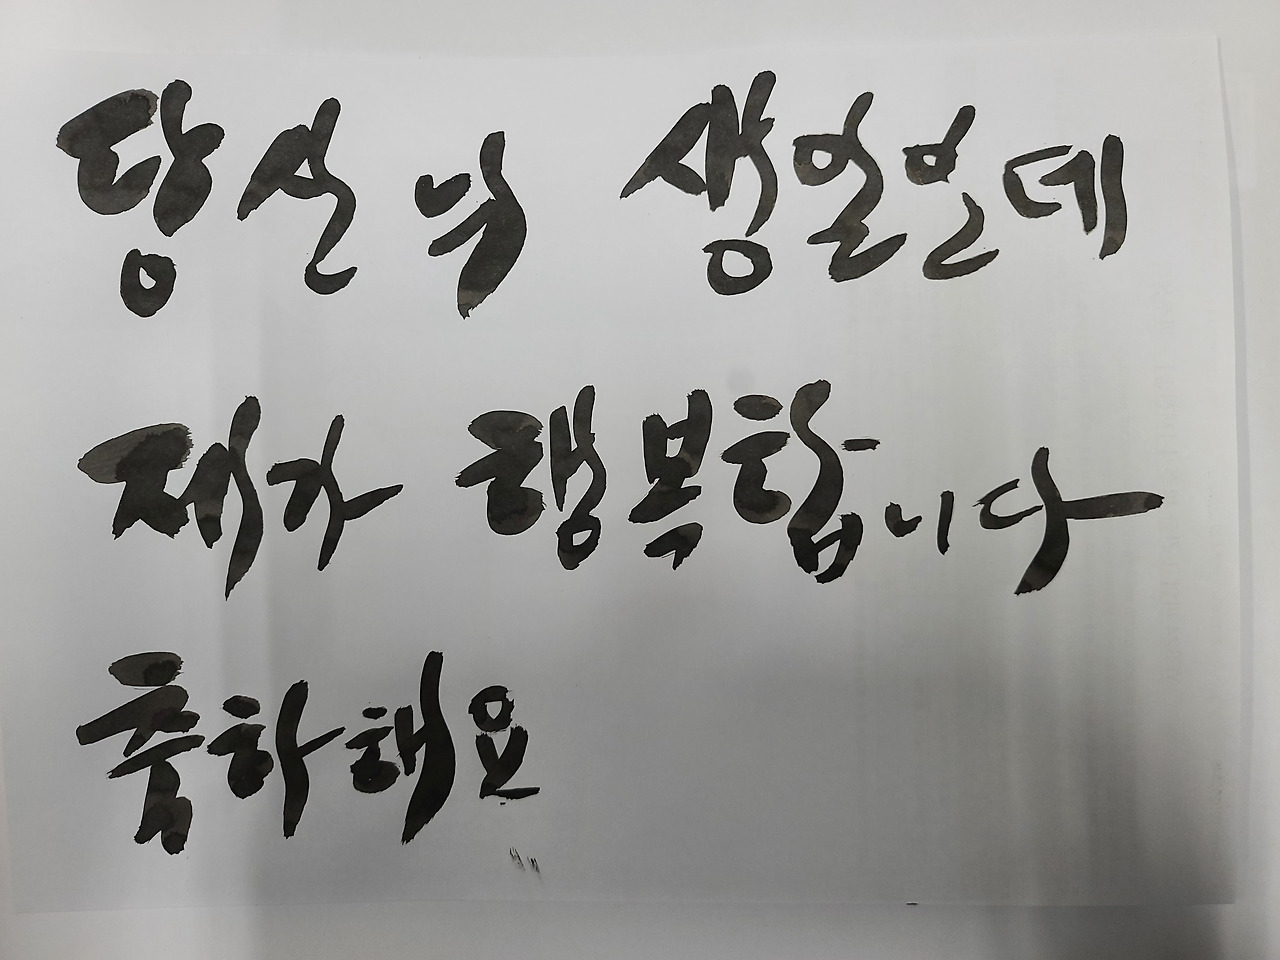 당신의 생일인데
제가 행복합니다
축하해요